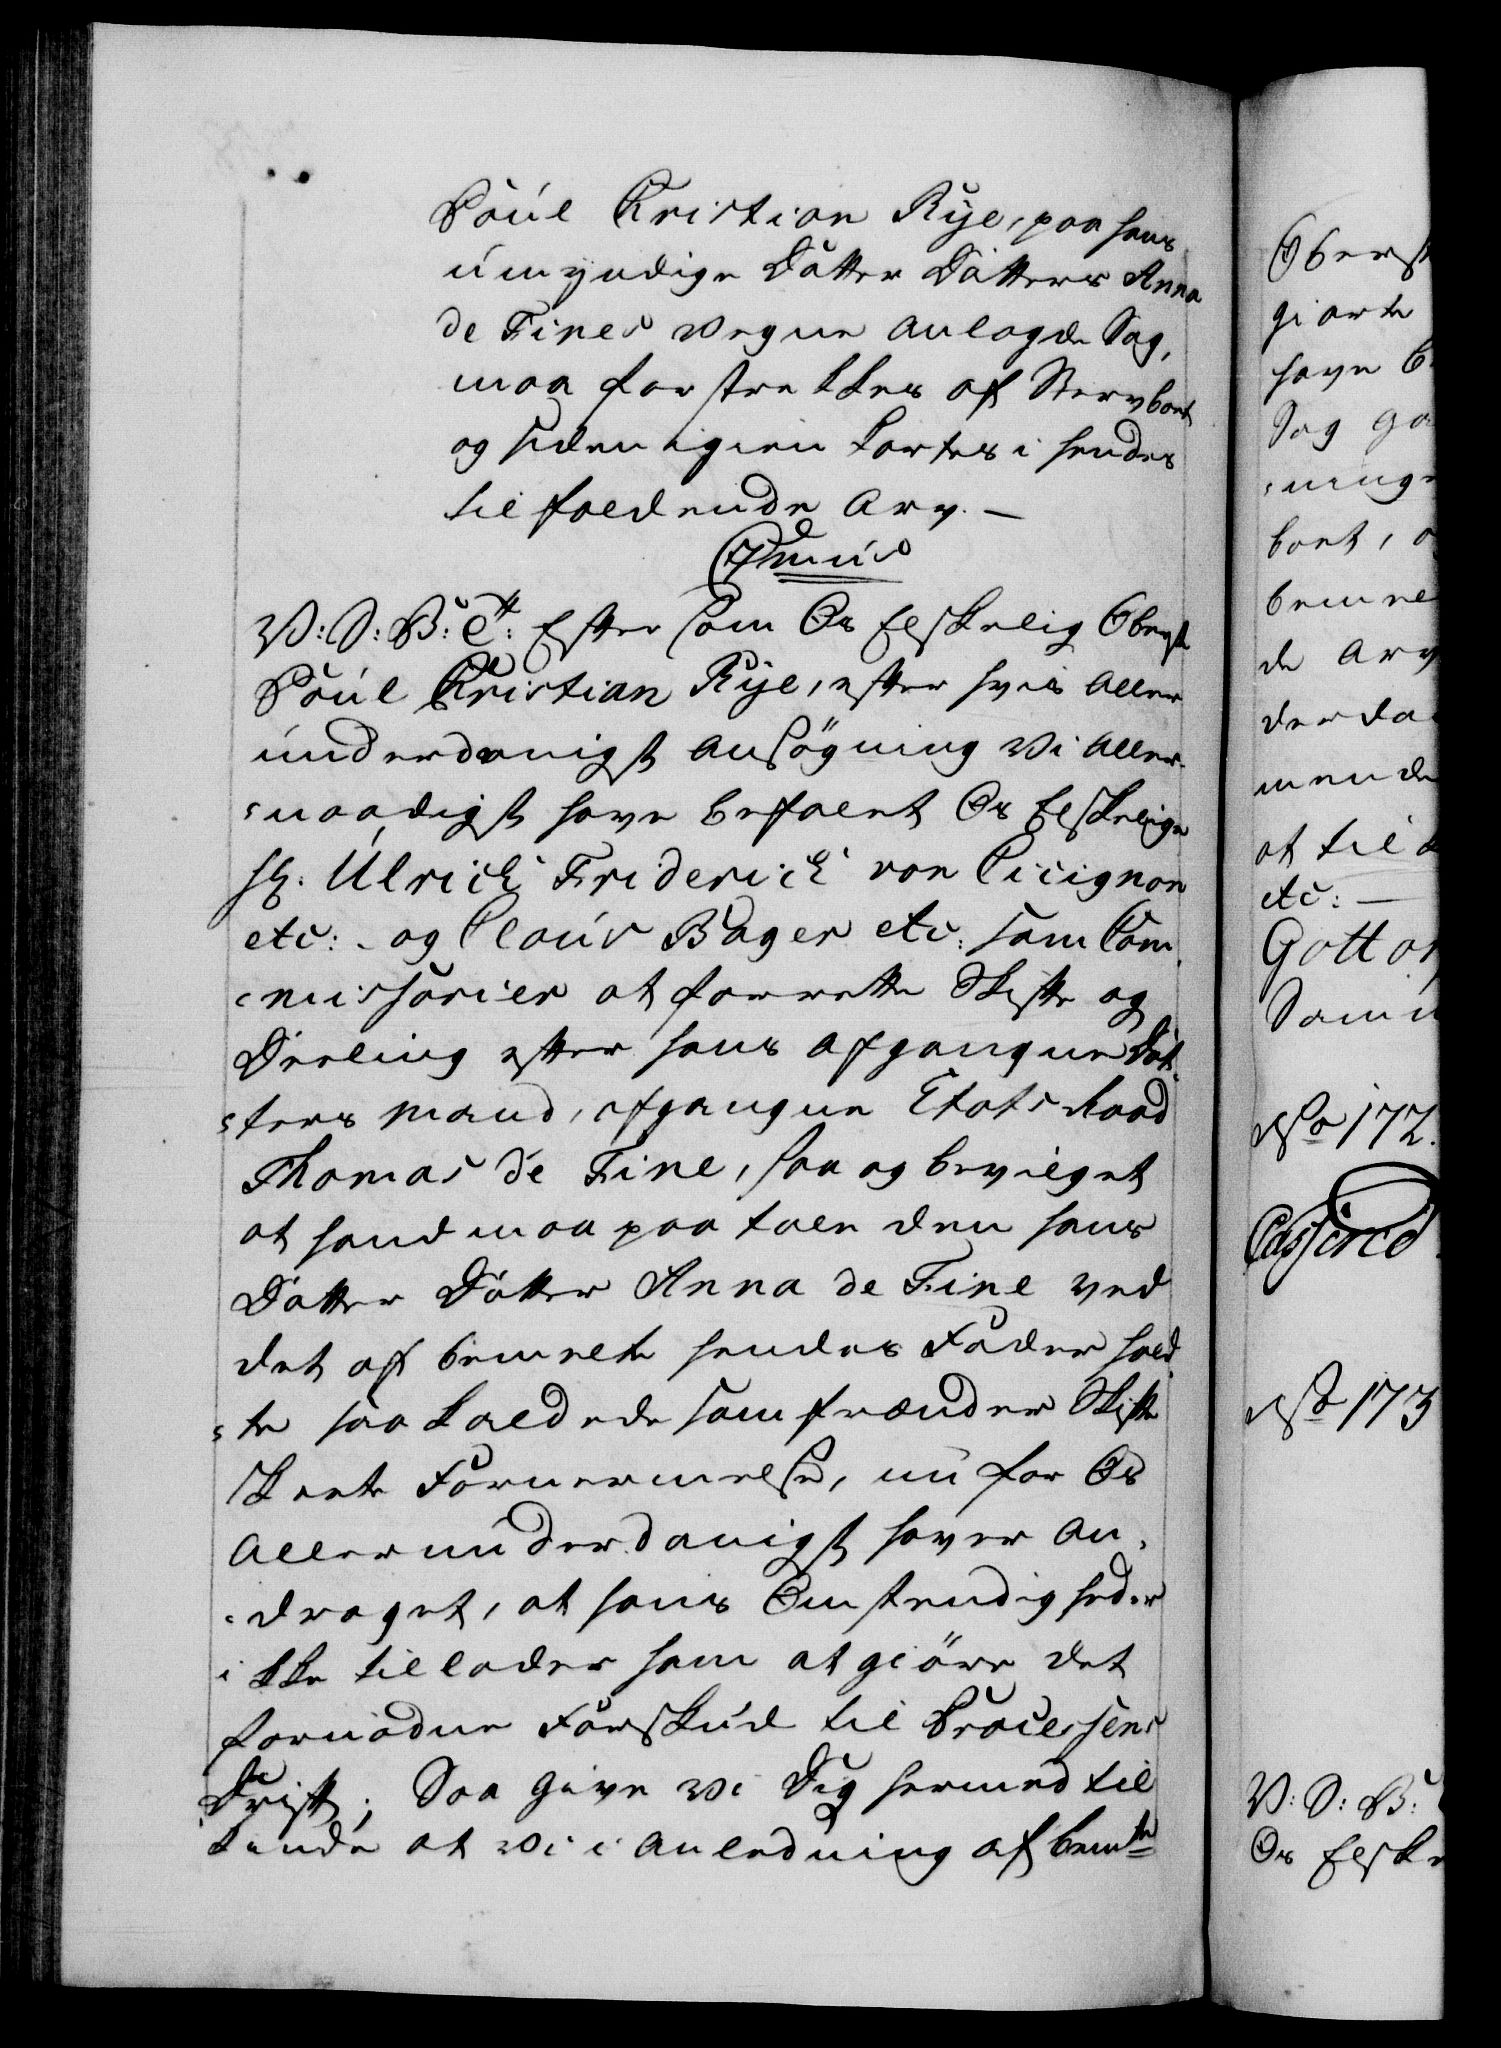 Poul Kristian Rye, paa hans
umyndige Datter Datters Anna
de Fines Vegne anlagde Sag,
maa forstrekkes af Stervboet
og siden igien kortes i hendes
tilfaldende Arv. —
V: S: B: Ctt: Eftersom Os Elskelig Oberst
Poul Kristian Rye, efter hvis aller
underdanigst Ansögning Vi aller-
naadigst have befalet Os Elskelige
Hr. Ulrich Friderich von Cicignon
etc: - og Claus Bager etc: som Com-
missarier at forrette Skifte og
Deeling efter hans afgangne Dat-
ters Mand, afgangne Etats Raad
Thomas de Fine, saa og bevilget
at hand maa paatale den hans
Datter Datter Anna de Fine ved
det af bemelte hendes Fader hold-
te saa kaldede samfrænder Skifte
skeete Fornermelse, nu for Os
allerunderdanigst haver an-
draget, at hans Omstendigheder
ikke tillader ham at giöre det
fornödne Forskud til Processens
Drift; Saa give Vi Dig hermed til
kiende at Vi i Anledning af bemte
Oberst
giorte
have
Sag
bort,
de Arv
at til
etc: —
Gottor
No 172.
Cassered
No 173
V: S: B:
Os Elske